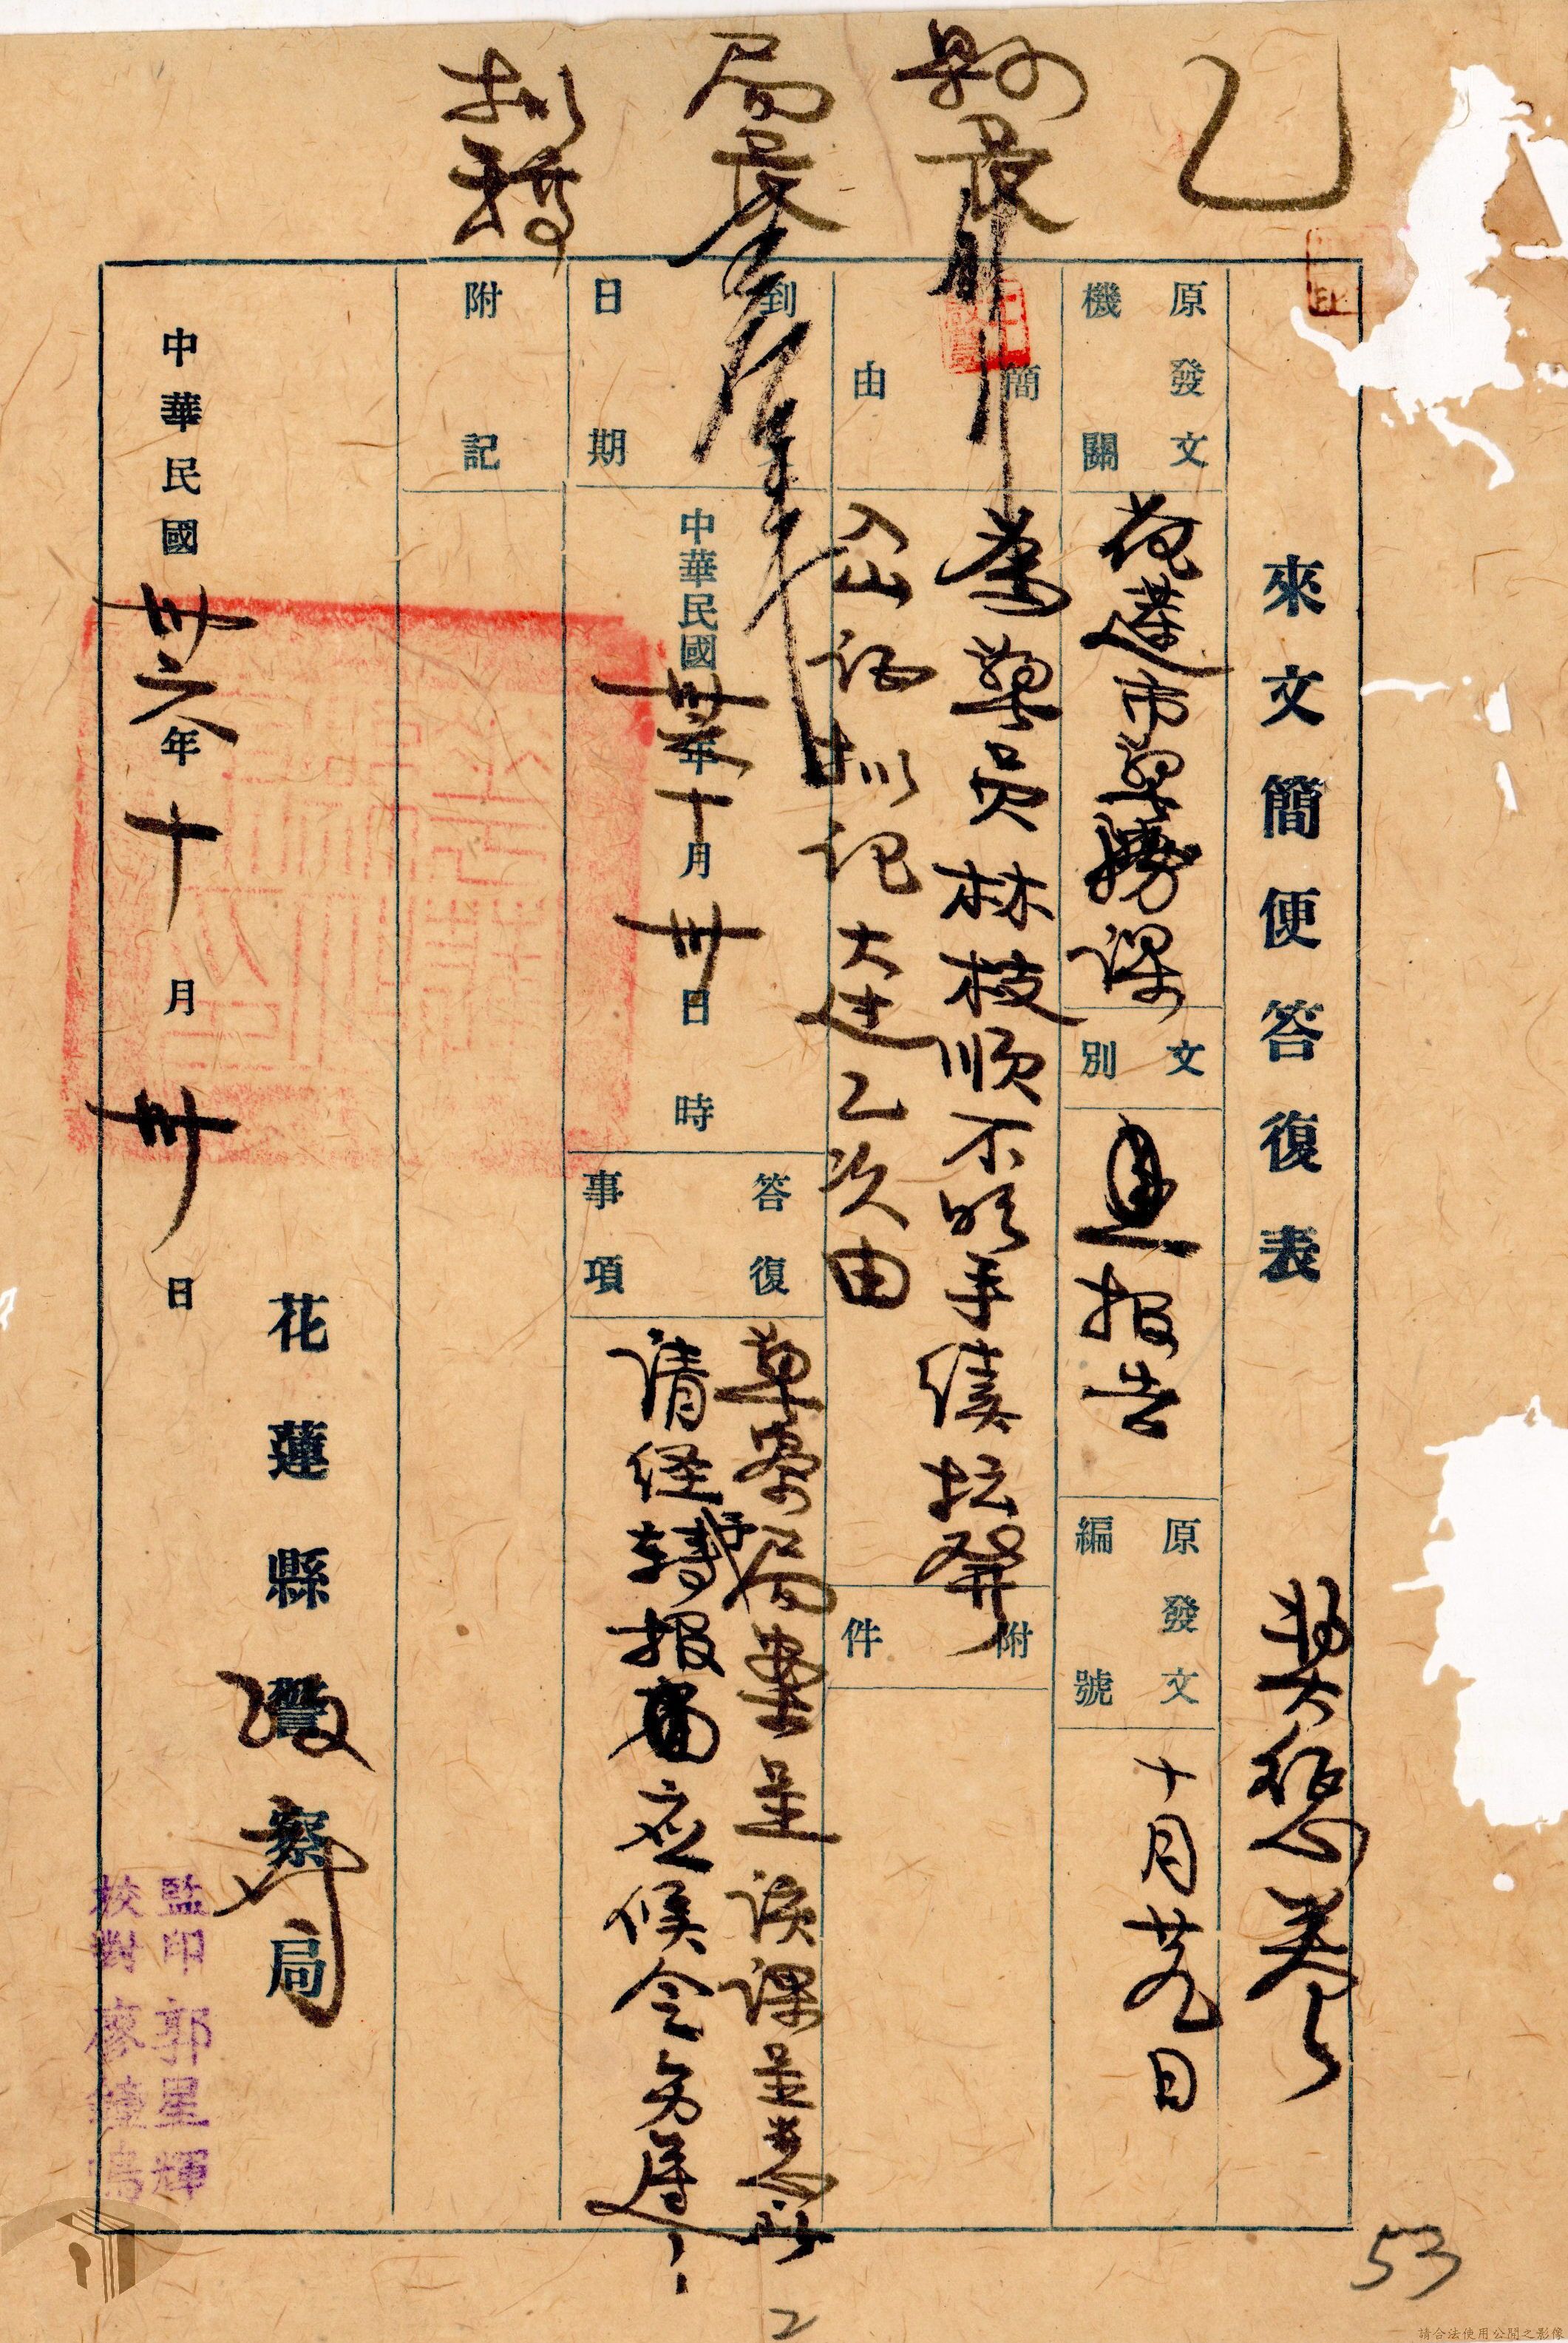 乙
來文簡便答復表
獎懲卷
原發文機關
花蓮市警務課
文別
報告
原發文編號
十月廿九日
簡由
為警員林枝順不明手續拉發
入山證擬記大過乙次由
附件
到日期
中華民國卅六年十月卅日時
答復事項
警察局書呈該課呈悉所
請經轉報應候令另遵
附記
花蓮縣警察局
中華民國卅六年十月卅日
局長
擬稿
監印 郭星輝
校對 廖鐘鳴
53
2
請合法使用公開之影像